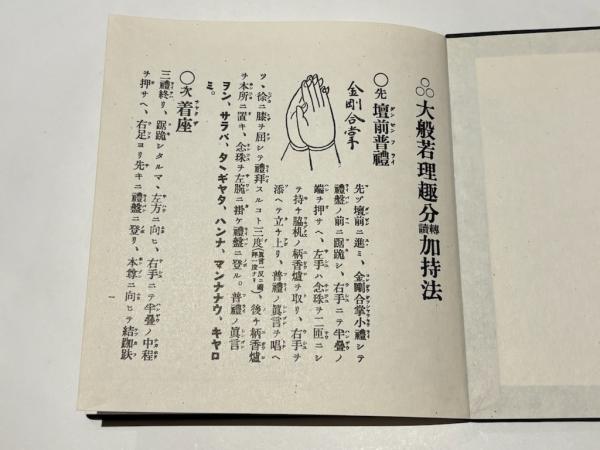 大般若理趣分轉讀加持法
○先 壇前普禮
金剛合掌
先ヅ壇前ニ進ミ、金剛合掌小禮シテ
禮盤ノ前ニ踞跪シ、右手ニテ半疊ノ
端ヲ押サヘ、左手ハ念珠ヲ二匝ニシ
テ持チ脇机ノ柄香爐ヲ取リ、右手ヲ
添ヘテ立チ上リ、普禮ノ眞言ヲ唱ヘ
ツヽ、徐ニ膝ヲ屈シテ禮拜スルコト三度、後チ柄香爐
ヲ本所ニ置キ、念珠ヲ左腕ニ掛ケ禮盤ニ登ル。普禮ノ眞言
ヲン、サラバ、タヽギャタ、ハンナ、マンナナウ、キャロ
ミ。
○次 着座
三禮終リ、踞跪シタルマヽ、左方ニ向ヒ、右手ニテ半疊ノ中程
ヲ押サヘ、右足ヨリ先キニ禮盤ニ登リ、本尊ニ向ヒテ結跏趺
一